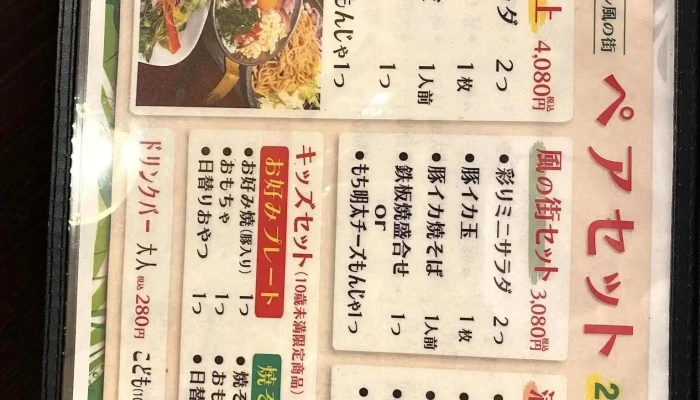 ン風の街
ペアセット
2
上
4,080円
税込
ダ 2つ
1枚
1人前
1つ
もんじゃ1つ
風の街セット 3,080円
税込
●彩りミニサラダ 2つ
●豚イカ玉 1枚
●豚イカ焼そば 1人前
●鉄板焼盛合せ 1つ
or
●もち明太チーズもんじゃ1つ
キッズセット(10歳未満限定商品)
お好みプレート
●お好み焼(豚入り) 1つ
●おもちゃ 1つ
●日替りおやつ 1つ
焼そ
●焼そ
●おも
●日替
ドリンクバー 大人 税込 280円 こども(10